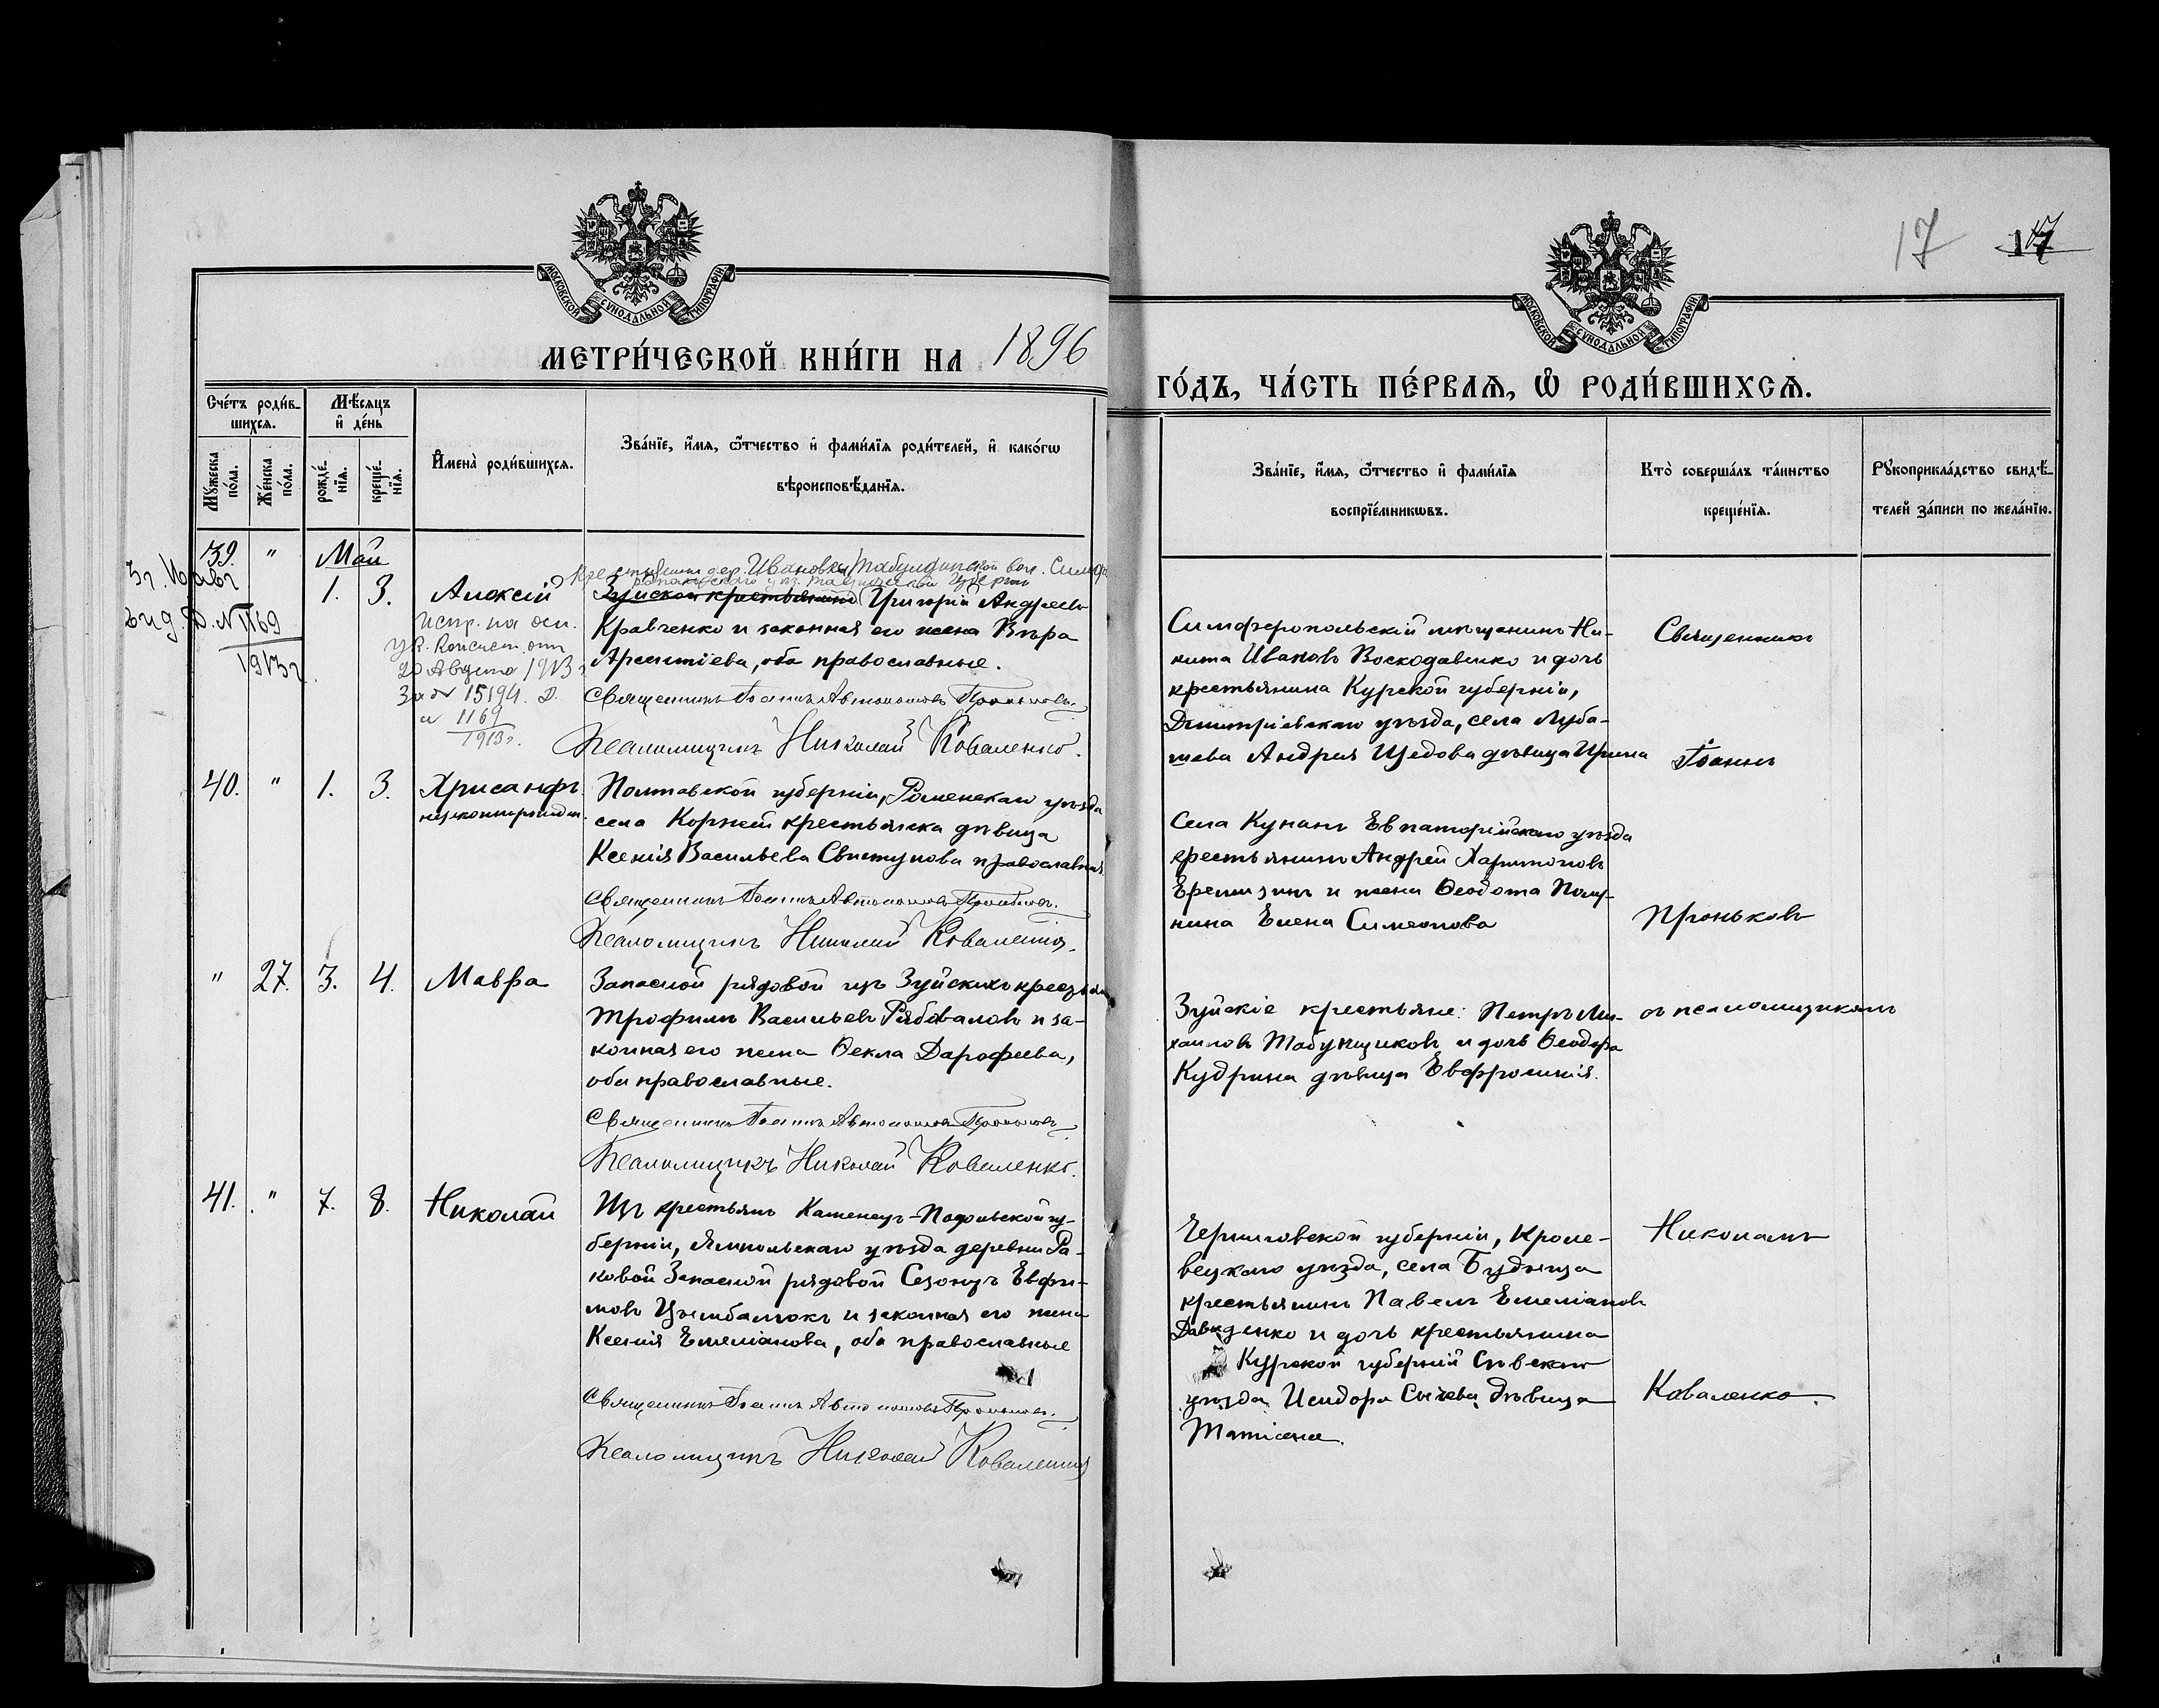 17 17
МОСКОВСКОЙ СѴНОДАЛЬНОЙ ТИПОГРАФІИ
МОСКОВСКОЙ СѴНОДАЛЬНОЙ ТИПОГРАФІИ
МЕТРИ́ЧЕСКОЙ КНИ́ГИ НА 1896
ГО́ДЪ, ЧА́СТЬ ПЕ́РВАѦ, Ѡ҆ РОДИ́ВШИХСѦ.
Сче́тъ роди́в-
шихсѧ.
Мꙋ́жеска
по́ла.
Же́нска
по́ла.
Мѣ́сѧцъ
и҆ де́нь
рожде́-
нїѧ.
креще́-
нїѧ.
И҆мена̀ роди́вшихсѧ.
Зва́нїе, и҆́мѧ, ѻ҆́тчество и҆ фами́лїѧ роди́телей, и҆ како́гѡ
вѣроисповѣ́данїѧ.
Зва́нїе, и҆́мѧ, ѻ҆́тчество и҆ фами́лїѧ
воспрїе́мникѡвъ.
Кто̀ соверша́лъ та́инство
креще́нїѧ.
Рꙋкоприкла́дство свидѣ́-
телей за́писи по жела́нїю.
39. " Май
1. 3. Алексій
Д. № 1169
1913 г.
Испр. на осн.
ук. Консист. отъ
20 Августа 1913 г.
За № 15194. Д.
№ 1169
1913 г.
Крестьянинъ дер. Ивановки Табулдинской вол. Симфе-
ропольскаго у. Таврической губерніи
Зуйской крестьянинъ Григорій Андреевъ
Кравченко и законная его жена Вѣра
Арсентіева, оба православные.
Священникъ Іоаннъ Автономовъ Проньковъ.
Псаломщикъ Николай Коваленко.
Симферопольскій мѣщанинъ Ни-
кита Ивановъ Воскодавенко и дочь
крестьянина Курской губерніи,
Дмитріевскаго уѣзда, села Луба-
шева Андрея Щедова дѣвица Ирина
Священникъ
Іоаннъ
40. " 1. 3. Хрисанфъ
незаконнорожден.
Полтавской губерніи, Роменскаго уѣзда
села Коржей крестьянка дѣвица
Ксенія Васильева Свистунова православная
Священникъ Іоаннъ Автономовъ Проньковъ.
Псаломщикъ Николай Коваленко.
Села Кунанъ Евпаторійскаго уѣзда
крестьянинъ Андрей Харитоновъ
и жена Ѳеодота
нина Елена Симеонова
Проньковъ
" 27. 3. 4. Мавра
Запасной рядовой изъ Зуйскихъ крестьянъ
Трофимъ Васильевъ Рябоваловъ и за-
конная его жена Ѳекла Дарофеева,
оба православные.
Священникъ Іоаннъ Автономовъ Проньковъ.
Псаломщикъ Николай Коваленко.
Зуйскіе крестьяне: Петръ Ми-
хаиловъ Табунщиковъ и дочь Ѳеодора
Кудрина дѣвица Евфросинія.
съ псаломщикомъ
41. " 7. 8. Николай
Изъ крестьянъ Каменецъ-Подольской гу-
берніи, Ямпольскаго уѣзда деревни Ра-
ковой Запасной рядовой Созонтъ Евфи-
мовъ Цымбалюкъ и законная его жена
Ксенія Емеліанова, оба православные
Священникъ Іоаннъ Автономовъ Проньковъ.
Псаломщикъ Николай Коваленко
Черниговской губерніи, Кроле-
вецкаго уѣзда, села Будища
крестьянинъ Павелъ Емеліановъ
Давиденко и дочь крестьянина
Курской губерніи Сѣвскаго
уѣзда Исидора Сычева дѣвица
Татіана.
Николаемъ
Коваленко.